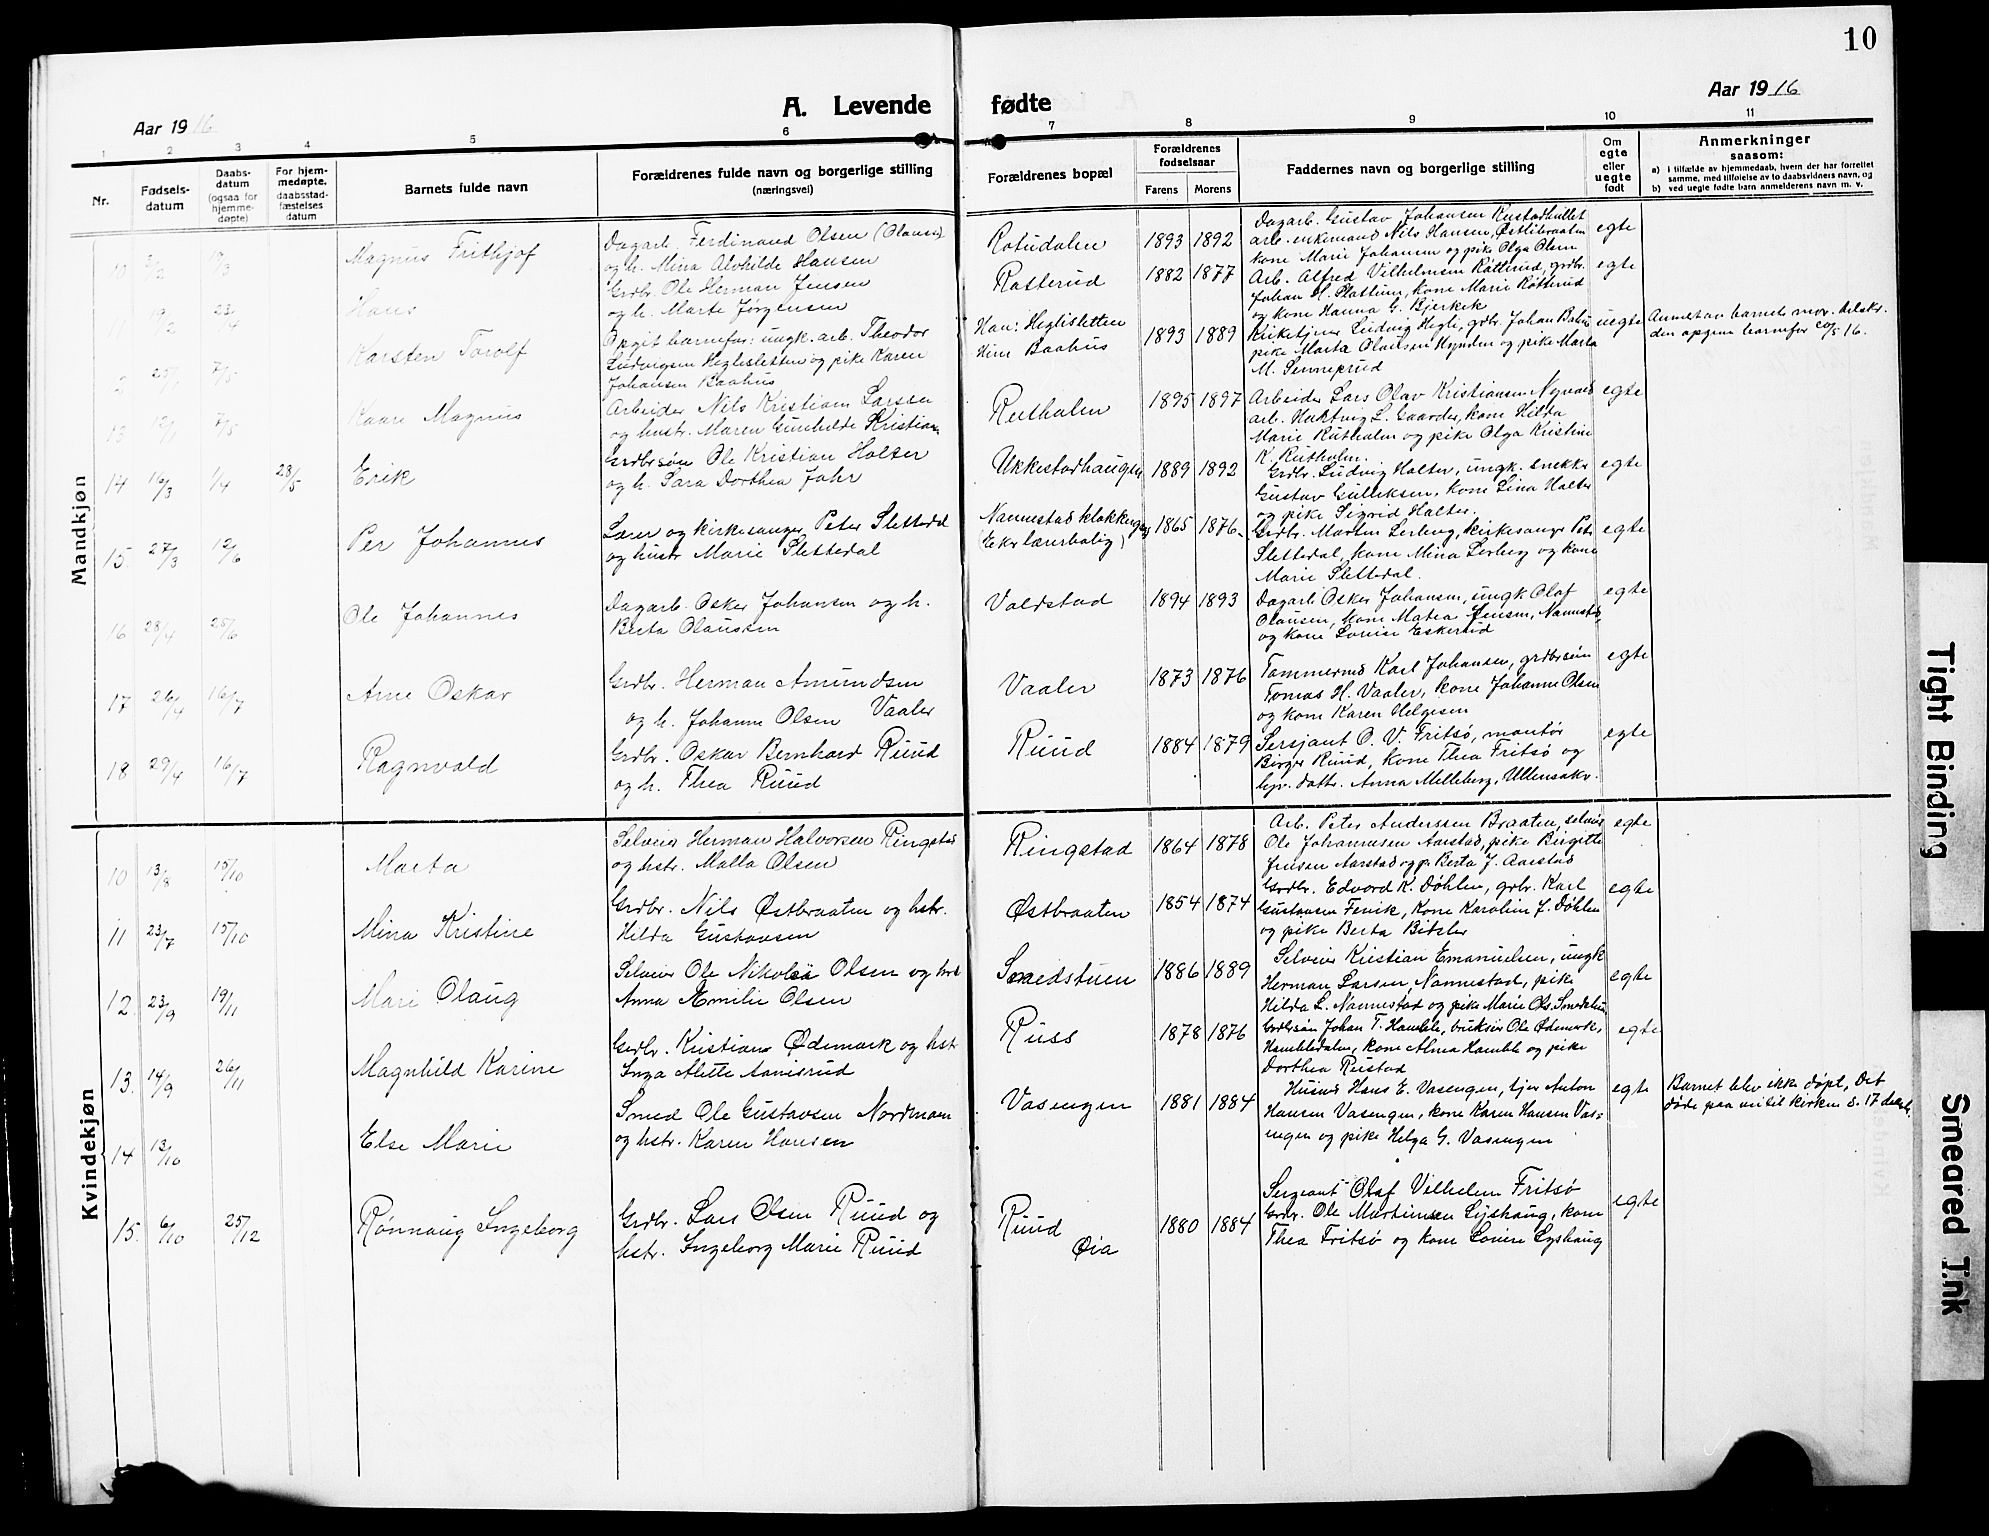 10
A. Levende fødte
Aar 1916
Aar 1916
1 2 3 4 5 6 7 8 9 10 11
Nr.
Fødsels-
datum
Daabs-
datum
(ogsaa for
hjemme-
døpte)
For hjem-
medøpte,
daabsstad-
fæstelses
datum
Barnets fulde navn
Forældrenes fulde navn og borgerlige stilling
(næringsvei)
Forældrenes bopæl
Forældrenes
fødselsaar
Farens Morens
Faddernes navn og borgerlige stilling
Om
egte
eller
uegte
født
Anmerkninger
saasom:
a) i tilfælde av hjemmedaab, hvem der har forrettet
samme, med tilføielse av to daabsvidners navn, og
b) ved uegte fødte barn anmelderens navn m. v.
Mandkjøn
10 3/2 19/3 Magnus Frithjof
Dagarb. Ferdinand Olsen (Olauss)
og h. Mina Alvhilde Hansen
Rotudalen 1893 1892
Dagarb. Gustav Johansen Rustadhullet
arb. enkemand Nils Hansen, Østlibraaten
kone Marie Johansen og pike Olga Olsen
egte
11 19/2 23/4 Hans
Grdbr. Ole Herman Jensen
og h. Marte Jørgensen
Rotterud 1882 1877
Arb. Alfred Vilhelmsen Røtterud, grdbr.
Johan H. Plattum, kone Marie Røtterud
og kone Hanna G. Bjerkek
egte
7/5 Karsten Torolf
Opgit barnefar: ungk. arb. Theodor
Ludvigsen Heglisletten og pike Karen
Johansen Baahus
Han: Heglisletten
Hun Baahus
1893 1889
Kirketjener Ludvig Hegli, grdbr. Johan Bahus
pike Marta Olausen Hynden og pike Marta
M. Senneprud
uegte
Anmeldt av barnets mor. Lensm.
den opgivne barnefar 20/5 16.
13 7/5 Kaare Magnus
Arbeider Nils Kristian Larsen
og hustr. Maren Gunhilde Kristian
Rutholen 1895 1897
Arbeider Lars Olav Kristiansen Nygaard
arb. Hartvig L. Gaarder, kone Hilda
Marie Rutholen og pike Olga Kristine
K. Rutholen.
egte
14 16/3 1/4 28/5 Erik
Grdbrsøn Ole Kristian Holter
og h. Sara Dorthea Jahr
Ukkestadhaugen 1889 1892
Grdbr. Ludvig Holter, ungk. snekker
Gustav Gulliksen, kone Lina Holter
og pike Sigrid Holter.
egte
15. 27/3 12/6 Per Johannes
Lærer og kirkesanger Peter Slettedal
og hustr. Marie Slettedal
Nannestad klokkergaard
(Eker lærerbolig)
1865 1876
Grdbr. Martin Lerberg, kirkesanger Peter
Slettedal, kone Mina Lerberg og kone
Marie Slettedal.
egte
16 28/4 25/6 Ole Johannes
Dagarb. Oskar Johansen og h.
Berta Olaussen
Voldstad 1894 1893
Dagarb. Oskar Johansen, ungk Olaf
Olausen, kone Matea Jensen, Nannestad,
og kone Lovise Eskerud
egte
17 26/4 16/7 Arne Oskar
Grdbr. Herman Amundsen
og h. Johanne Olsen Vaaler
Vaaler 1873 1876
Tømmermd Karl Johansen, grdbrsøn
Tomas H. Vaaler, kone Johanne Olsen
og kone Karen Helgesen
egte
18 29/4 16/7 Ragnvald
Grdbr. Oskar Bernhard Ruud
og h. Thea Ruud
Ruud 1884 1879
Sersjant O. V. Fritsø, montør
Birger Ruud, kone Thea Fritsø og
hjv. dattr. Anna Melleberg, Ullensaker.
egte
Kvindekjøn
10 13/8 15/10 Marta
Selveier Herman Halvorsen Ringstad
og hstr. Malla Olsen
Ringstad 1864 1878
Arb. Peter Anderssen Braaten, selveier
Ole Johannesen Aarstad, pike Birgitte
Jensen Aarstad og p. Berta J. Aarstad
egte
11 23/7 15/10 Mina Kristine
Grdbr. Nils Østbraaten og hstr.
Hilda Gustavsen
Østbraaten 1854 1874
Grdbr. Edvard K. Døhlen, grbr. Karl
Gustavsen Fenik, kone Karoline J. Døhlen
og pike Berta Bitsler
egte
12. 23/9 19/11 Mari Olaug
Selveier Ole Nikolai Olsen og hstr
Anna Emilie Olsen
Smedstuen 1886 1889
Selveier Kristian Emanuelsen, ungk
Herman Larsen, Nannestad, pike
Hilda L. Nannestad og pike Marie Ols. Smedstuen
egte
13. 14/9 26/11 Magnhild Karine
Grdbr. Kristian Ødemark og hstr
Inga Alette Aamisrud
Russ 1878 1876
Grdbrsøn Johan T. Hamble, bruksier Ole Ødemark,
Hambledalen, kone Alma Hamble og pike
Dorthea Rustad
egte
14 13/10 Else Marie
Smed Ole Gustavsen Nordmoen
og hstr. Karen Hansen
Vasengen 1881 1884
Husmd Hans E. Vasengen, tjen Anton
Hansen Vasengen, kone Karen Hansen Vas-
engen og pike Helga G. Vasengen
egte
Barnet blev ikke døpt, det
døde paa vei til kirken d. 17 decbr.
15. 6/10 25/12 Rønnaug Ingeborg
Grdbr. Lars Olsen Ruud og
hstr. Ingeborg Marie Ruud
Ruud
Øia
1880 1884
Sergeant Olaf Vilhelm Fritsø
Grdr. Ole Martinsen Lyshaug, kone
Thea Fritsø og kone Lovise Lyshaug
egte
Tight Binding
Smeared Ink